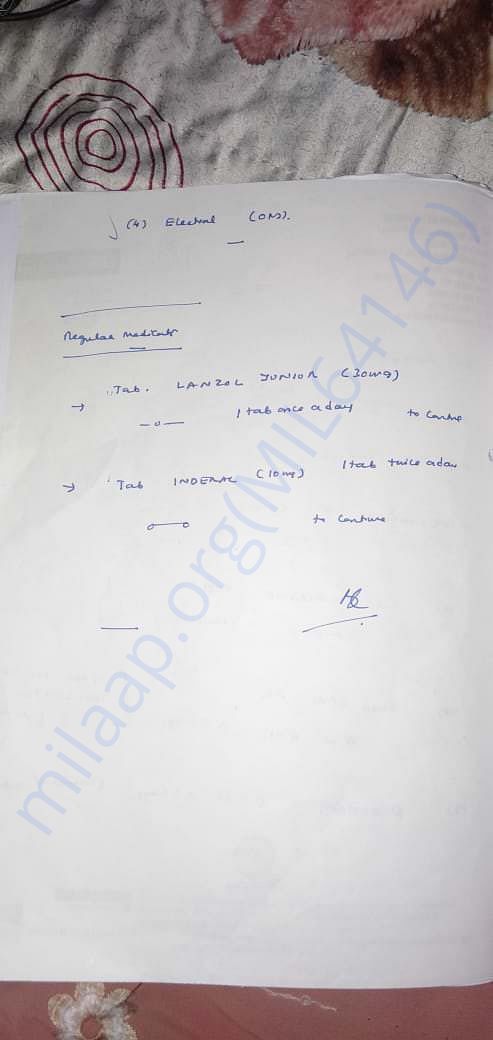 (4) Electral (ORS).
Regular Medicats
→ Tab. LANZOL JUNIOR (30mg)
1 tab once a day to Contine
→ Tab INDERAL (10mg) 1 tab twice a day
to Continue
milaap.org(MIL64146)